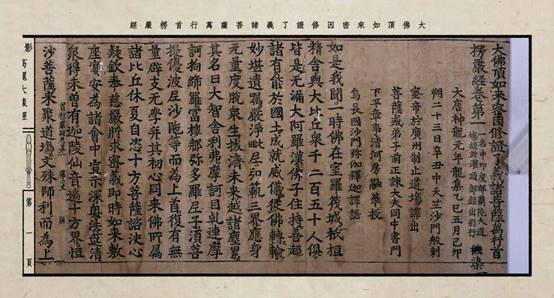 大佛頂如來密因修證了義諸菩薩萬行首楞嚴經
大佛頂如來密因修證了義諸菩薩萬行首
楞嚴經卷第一
一名中印度那蘭陀大道
場經於灌頂部錄出別行
大唐神龍元年龍集乙巳五月己卯
朔二十三日辛丑中天竺沙門般剌
蜜帝於廣州制止道場譯出
菩薩戒弟子前正諫大夫同中書門
下平章事清河房融筆授
烏長國沙門彌伽釋迦譯語
如是我聞一時佛在室羅筏城祇桓
精舍與大比丘眾千二百五十人俱
皆是無漏大阿羅漢佛子住持善超
諸有能於國土成就威儀從佛轉輪
妙堪遺囑嚴淨毗尼弘範三界應身
無量度脫眾生拔濟未來越諸塵累
其名曰大智舍利弗摩訶目乾連摩
訶拘絺羅富樓那彌多羅尼子須菩
提優波尼沙陁等而為上首復有無
量辟支無學并其初心同來佛所屬
諸比丘休夏自恣十方菩薩諮決心
疑欽奉慈嚴將求密義即時如來敷
座宴安為諸會中宣示深奧法筵清
眾得未曾有迦陵仙音遍十方界恒
沙菩薩來聚道場文殊師利而為上
影
大藏經
第一頁